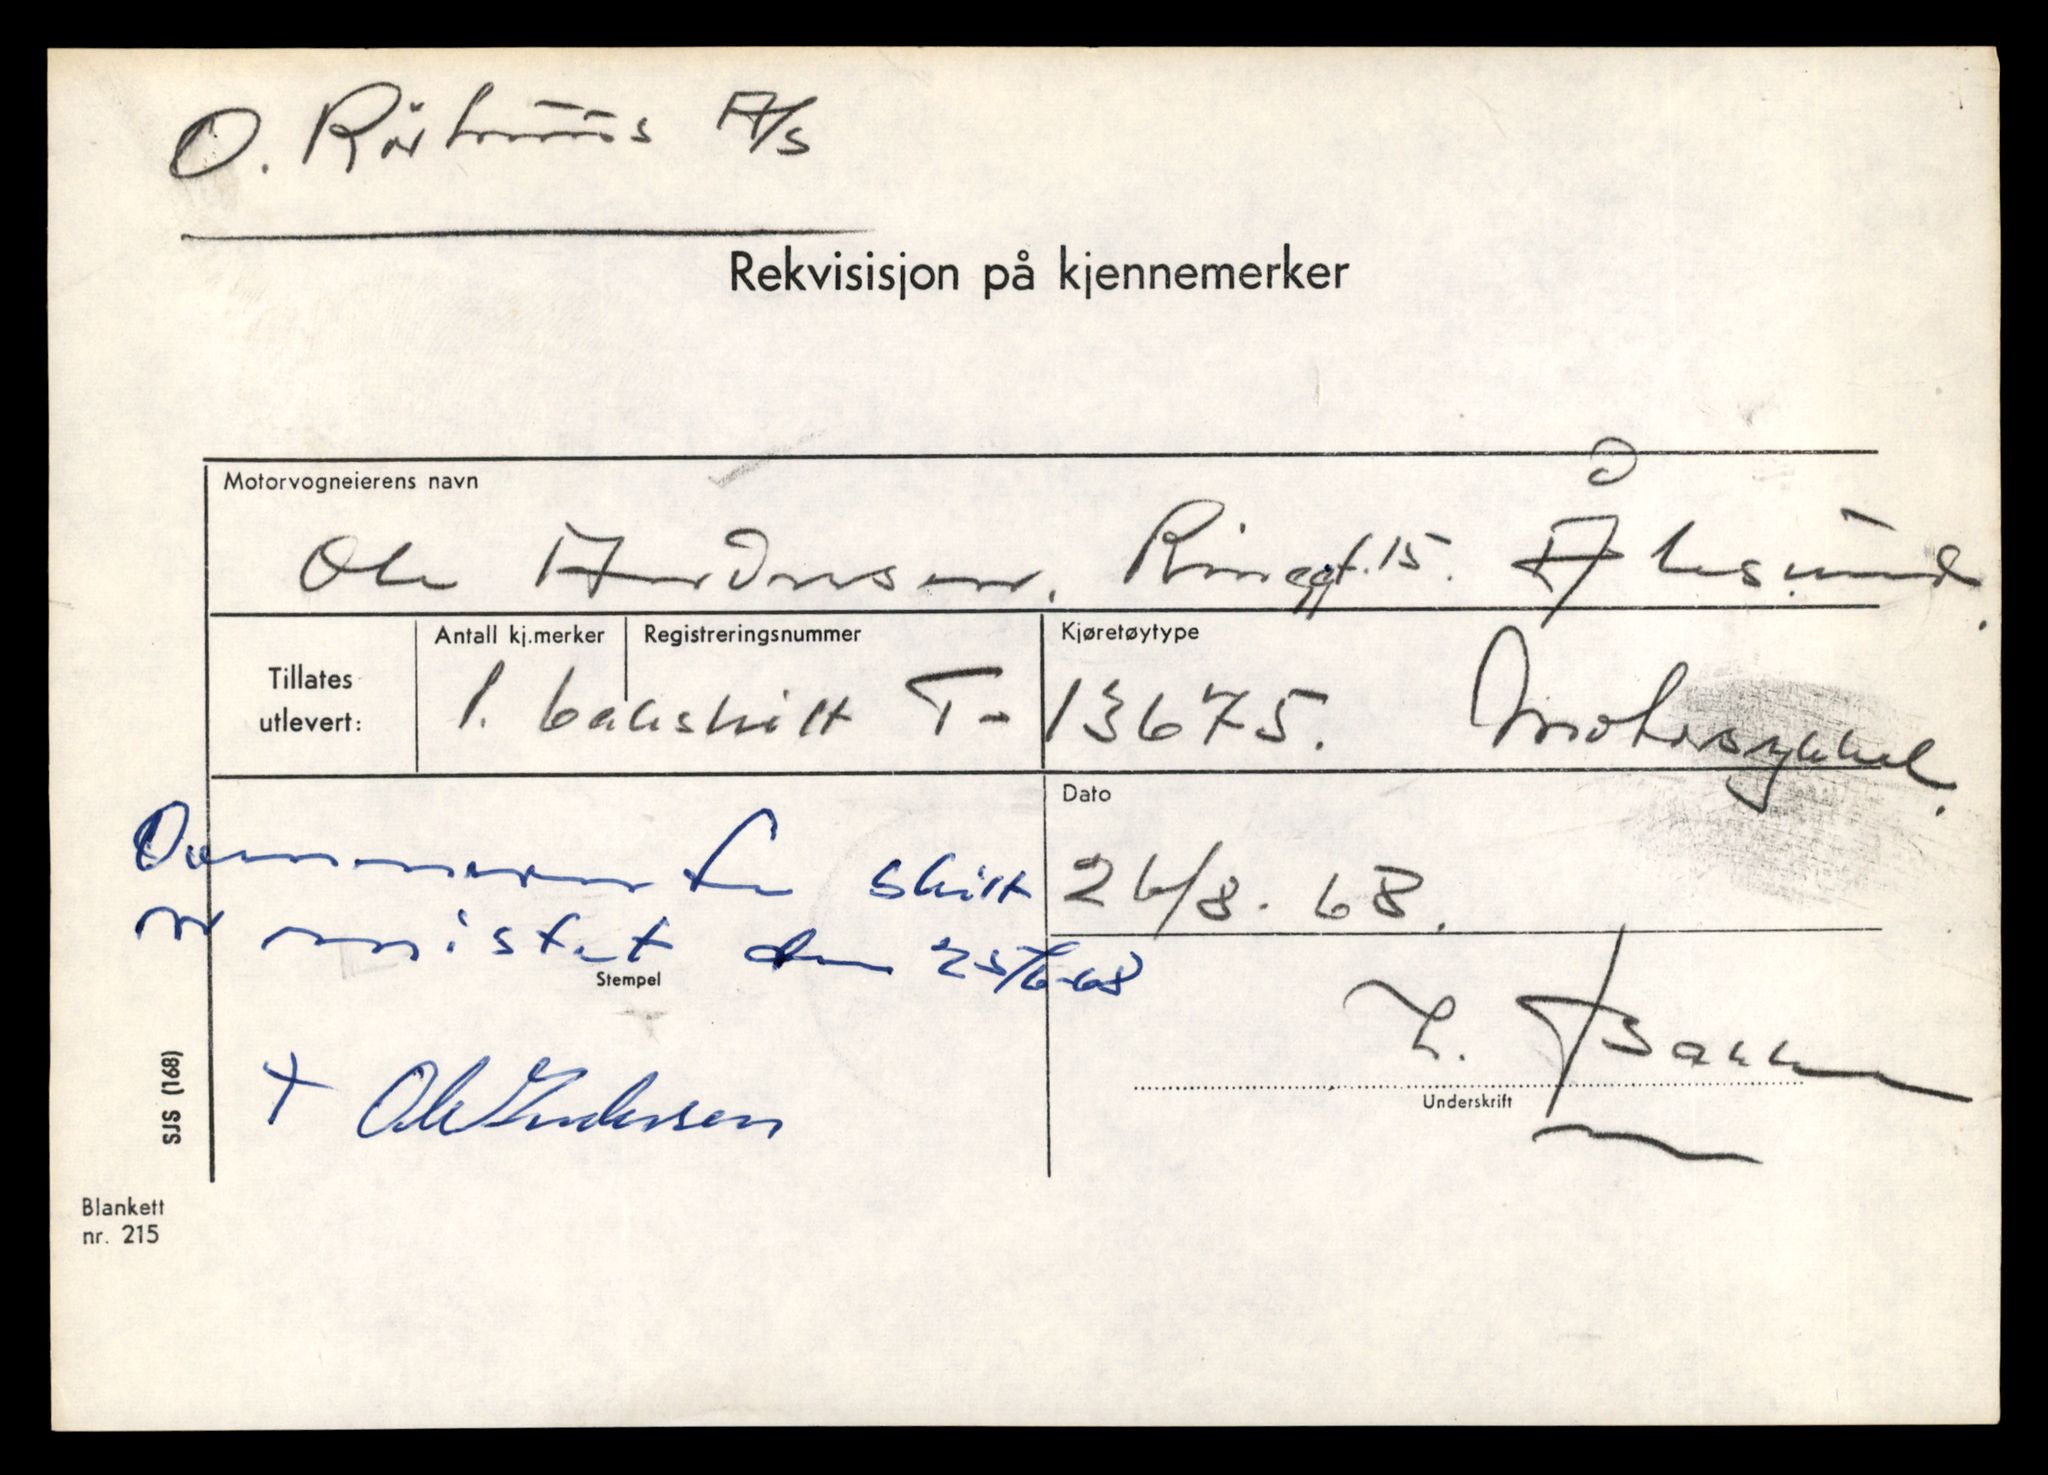 O. Rörhuus A/S
Rekvisisjon på kjennemerker
Motorvogneierens navn
Ole Andersen. Ringgt. 15. Ålesund.
Tillates utlevert:
Antall kj.merker
Registreringsnummer
Kjøretøytype
1. bakskilt T-13675. Motorsykkel.
Dato
26/8. 68.
skilt
er mistet den 25/6-68
Stempel
+ Ole Andersen
Bakke
Underskrift
SJS (168)
Blankett
nr. 215